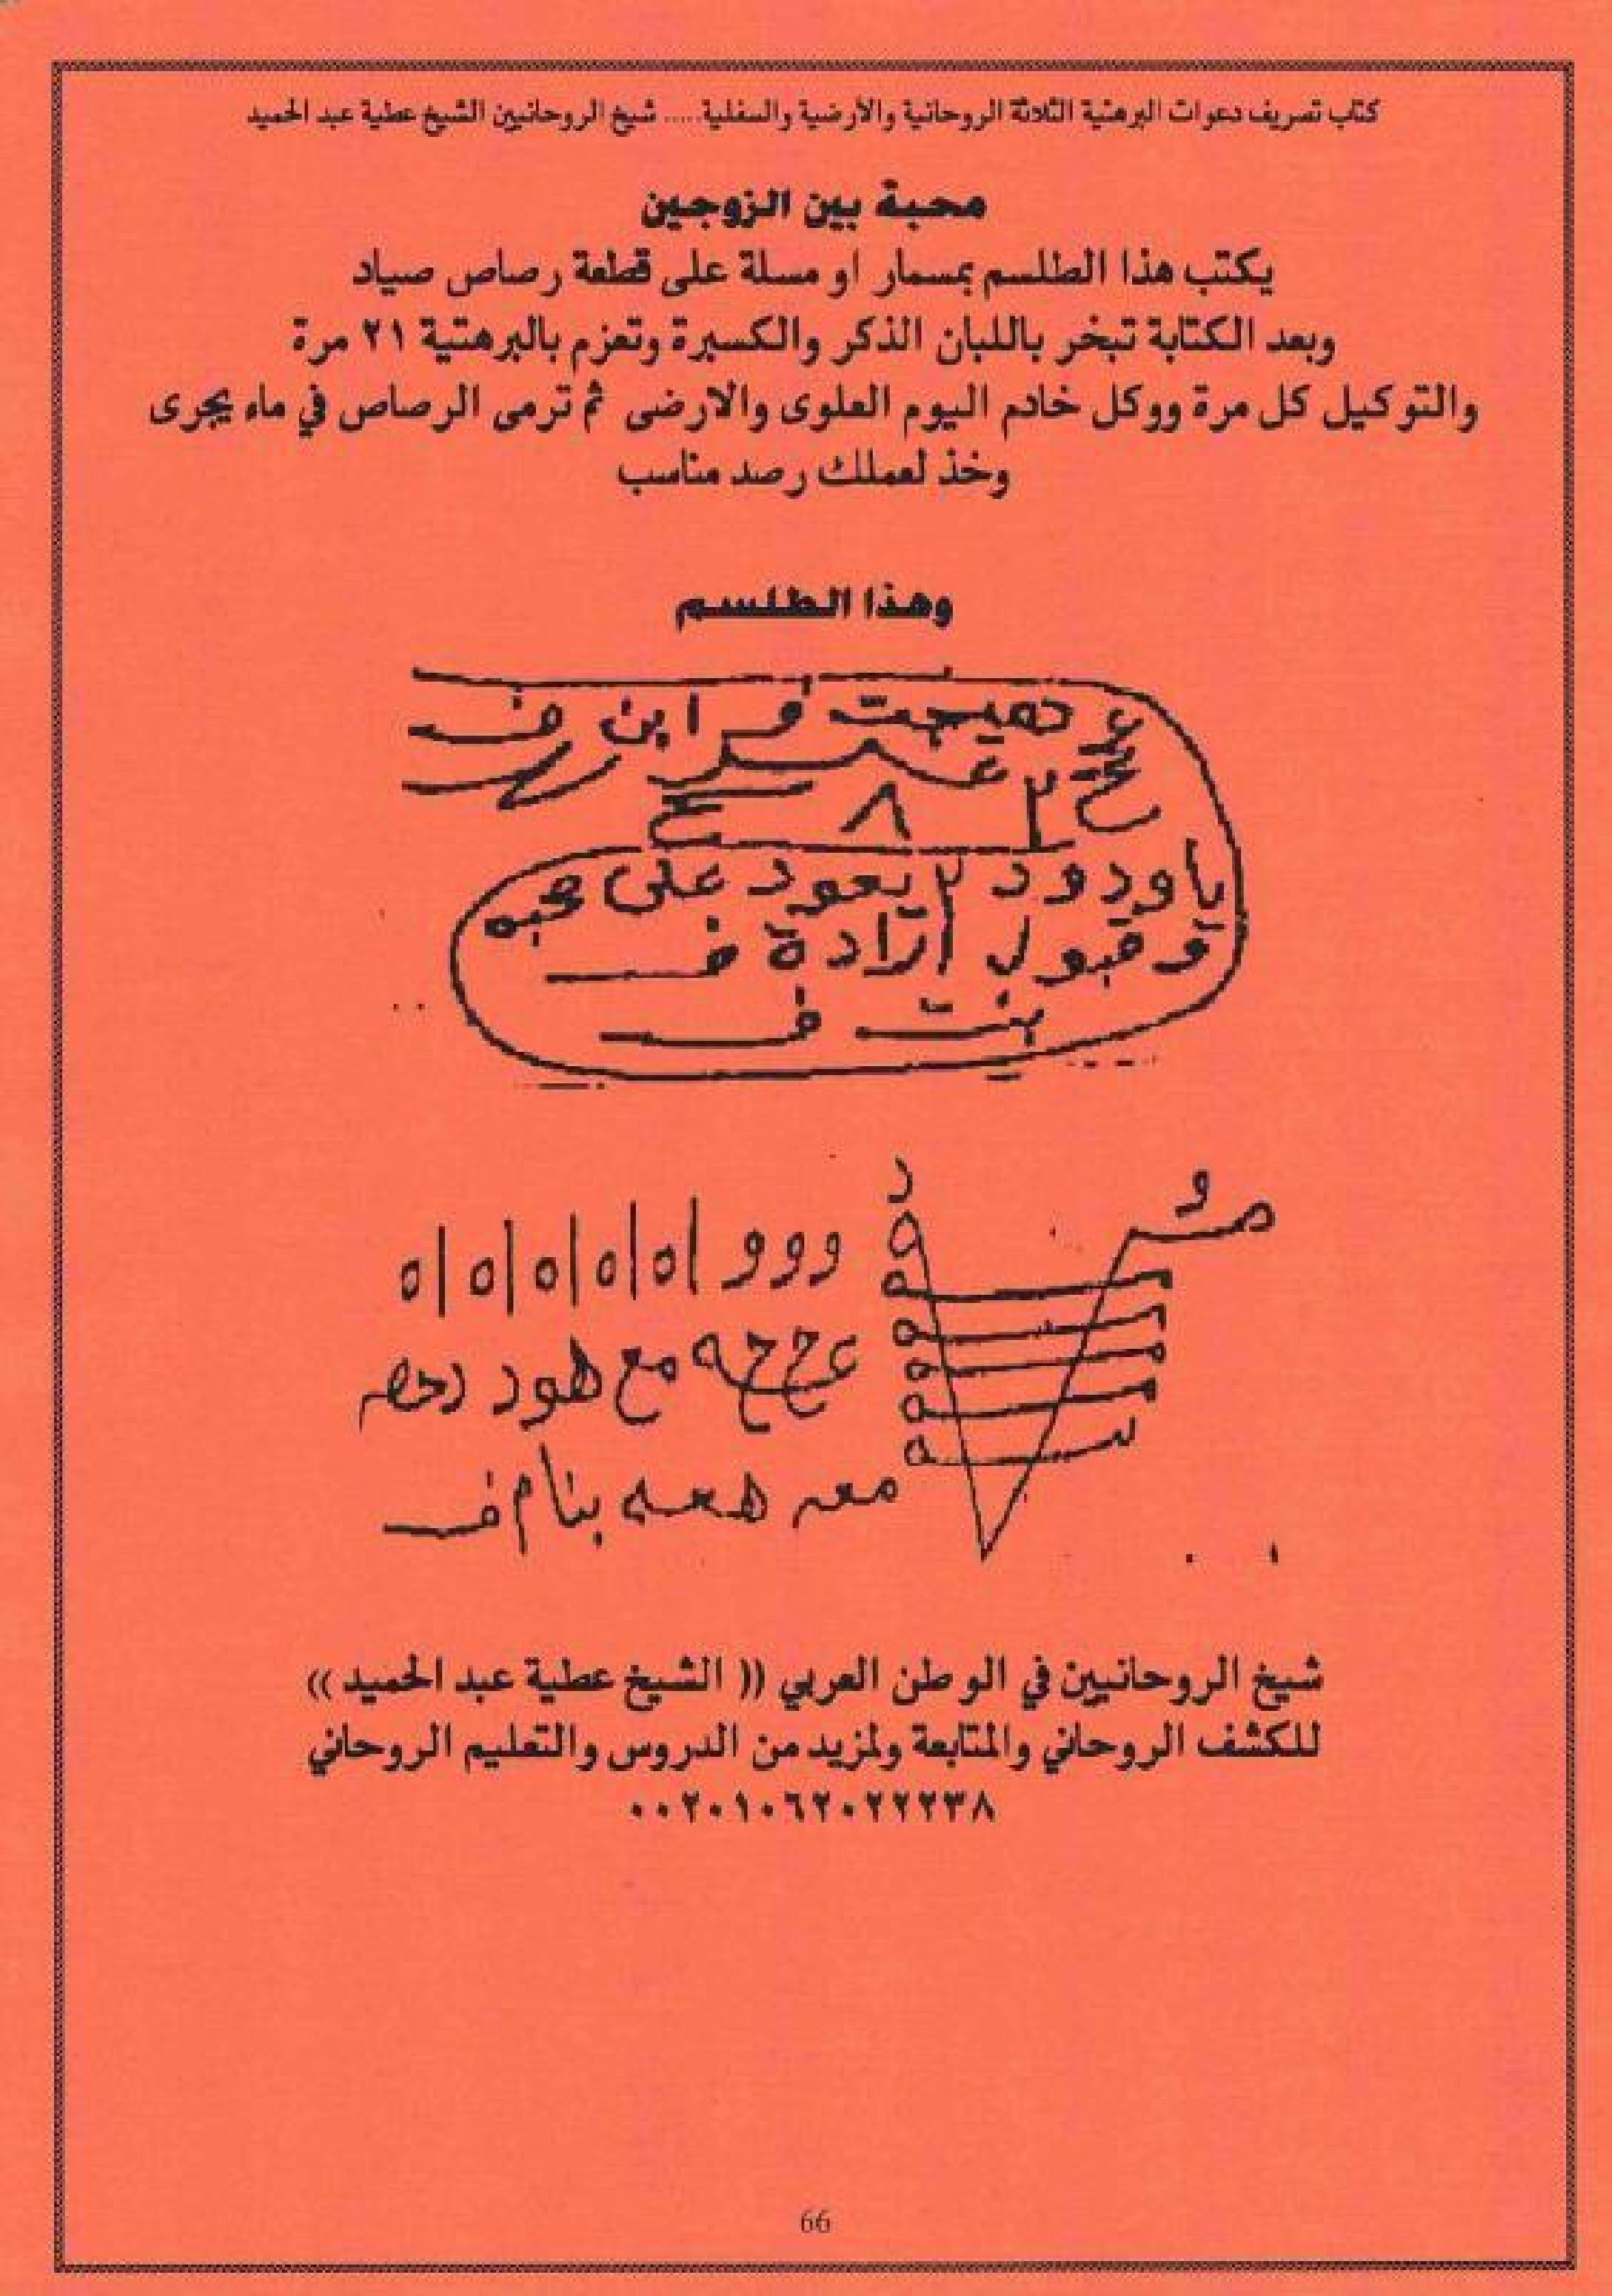 كتاب تصريف دعوات البرهتية الثلاثة الروحانية والأرضية والسفلية ..... شيخ الروحانيين الشيخ عطية عبد الحميد
محبة بين الزوجين
يكتب هذا الطلسم بمسمار او مسلة على قطعة رصاص صياد
وبعد الكتابة تبخر باللبان الذكر والكسبرة وتعزم بالبرهتية ٢١ مرة
والتوكيل كل مرة ووكل خادم اليوم العلوى والارضى ثم ترمى الرصاص في ماء يجرى
وخذ لعملك رصد مناسب
وهذا الطلسم
ابن ف
٢ ٨
يا ودود ٢ يعود على محبه
وقبول ارادة ف
بنت ف
و د
ووو اه اه اه اه اه
مع هود
معه بنام ف
شيخ الروحانيين في الوطن العربي (( الشيخ عطية عبد الحميد ))
للكشف الروحاني والمتابعة ولمزيد من الدروس والتعليم الروحاني
٠٠٢٠١٠٦٢٠٢٢٢٣٨
66